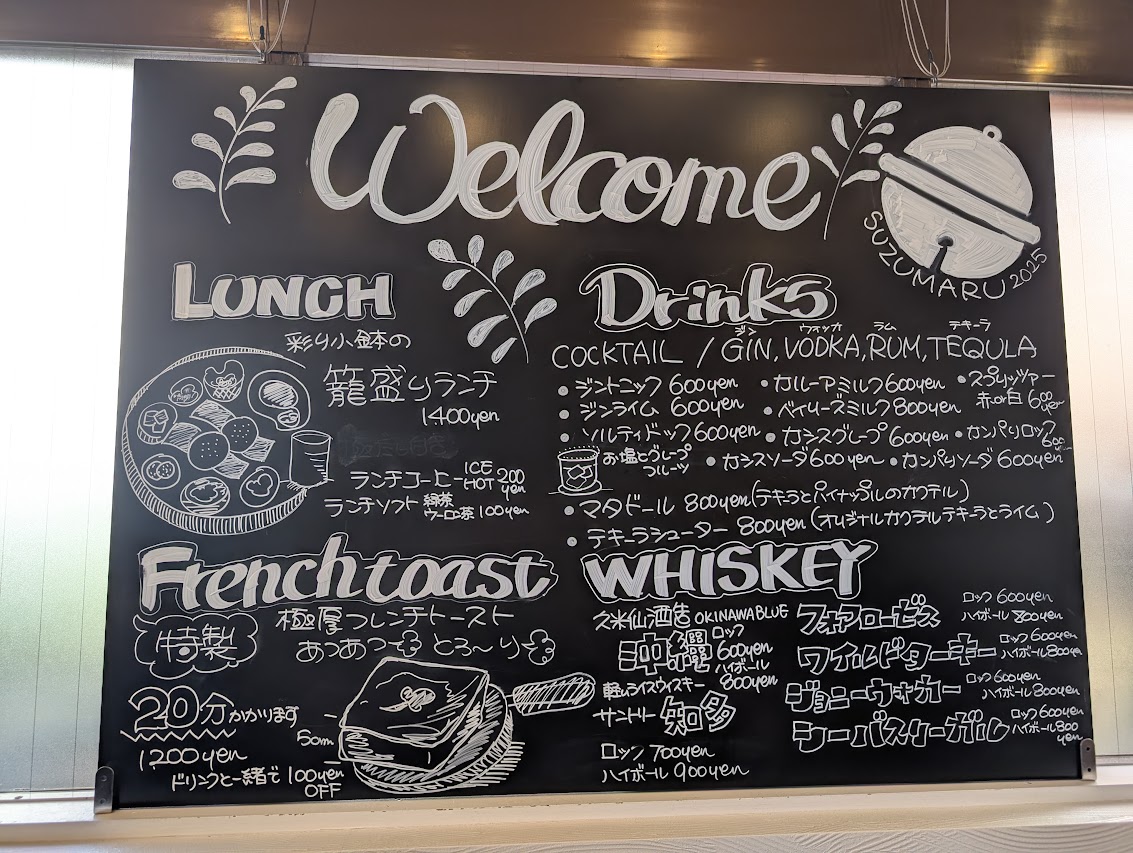 Welcome
SUZUMARU 2025
LUNCH
彩り小鉢の
籠盛りランチ
1400yen
ランチコーヒー ICE HOT 200 yen
ランチソフト 緑茶 ウーロン茶 100yen
Drinks
ジン ウォッカ ラム テキーラ
COCKTAIL / GIN, VODKA, RUM, TEQULA
・ジントニック 600yen
・カルーアミルク 600yen
・スプリッツァー 赤or白 600 yen
・ジンライム 600yen
・ベイリーズミルク 800yen
・ソルティドッグ 600yen
・カシスグレープ 600yen
・カンパリロック 600 yen
お塩とグレープフルーツ
・カシスソーダ 600yen
・カンパリソーダ 600yen
・マタドール 800yen (テキーラとパイナップルのカクテル)
・テキーラシューター 800yen (オリジナルカクテルテキーラとライム)
French toast
特製
極厚フレンチトースト
あつあつ とろ〜り
20分かかります
1200yen
ドリンクと一緒で 100yen OFF
5cm
WHISKEY
久米仙酒造 OKINAWA BLUE
沖縄
ロック 600yen
ハイボール 800yen
軽いライスウイスキー
サントリー 知多
ロック 700yen
ハイボール 900yen
フォアローゼス
ロック 600yen
ハイボール 800yen
ワイルドターキー
ロック 600yen
ハイボール 800yen
ジョニーウォーカー
ロック 600yen
ハイボール 800yen
シーバスリーガル
ロック 600yen
ハイボール 800 yen